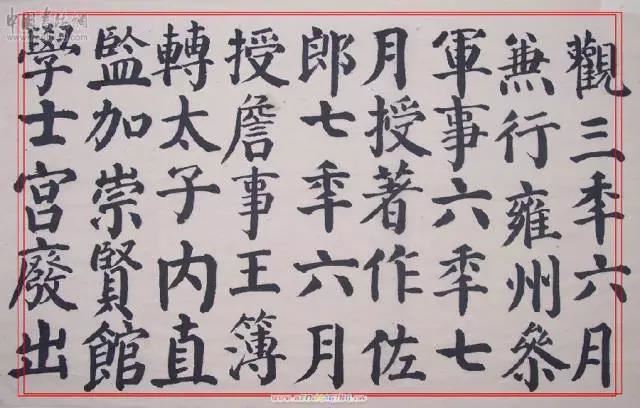 觀三秊六月
兼行雍州叅
軍事六秊七
月授著作佐
郎七秊六月
授詹事王簿
轉太子內直
監加崇賢館
學士宮廢出